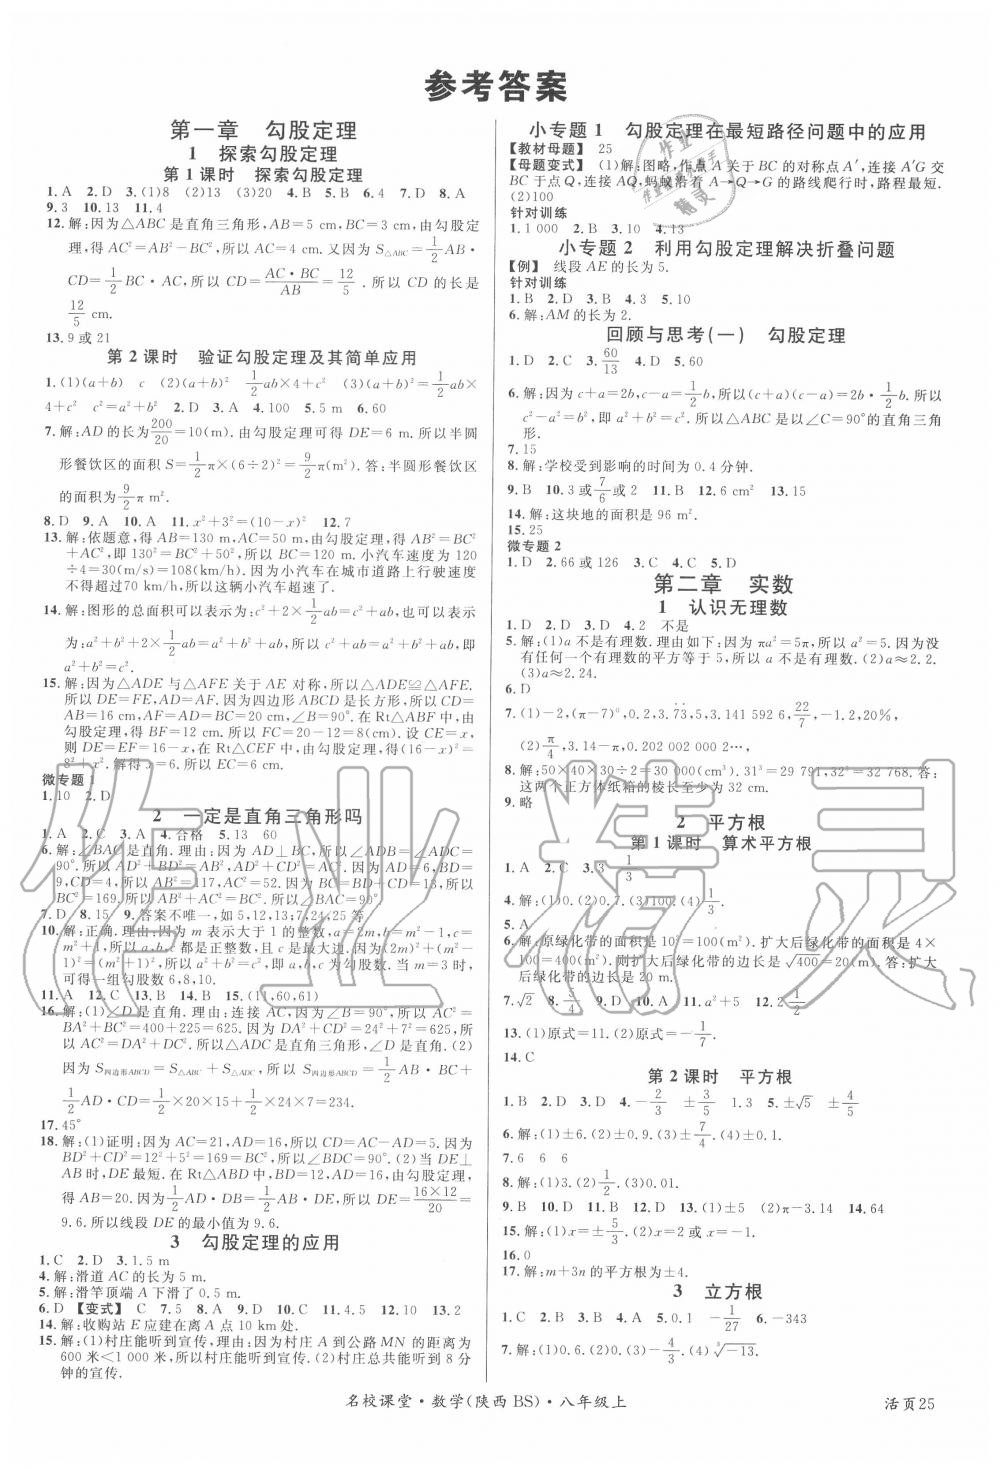 参考答案
第一章 勾股定理
1 探索勾股定理
第1课时 探索勾股定理
1.A 2.D 3.(1)8 (2)13 (3)20 4.B 5.B 6.4 7.D 8.A
9.3 10.13 11.4
12.解:因为△ABC是直角三角形,AB=5 cm,BC=3 cm,由勾股定
理,得AC²=AB²-BC²,所以AC=4 cm.又因为S△ABC=1/2AB·
CD=1/2BC·AC,所以CD=AC·BC/AB=12/5.所以CD的长是
12/5 cm.
13.9或21
第2课时 验证勾股定理及其简单应用
1.(1)(a+b) c (2)(a+b)² 1/2ab×4+c² (3)(a+b)²=1/2ab×
4+c² c²=a²+b² 2.D 3.A 4.100 5.5 m 6.60
7.解:AD的长为200/20=10(m).由勾股定理可得DE=6 m.所以半圆
形餐饮区的面积S=1/2π×(6÷2)²=9/2π(m²).答:半圆形餐饮区
的面积为9/2π m².
8.D 9.A 10.A 11.x²+3²=(10-x)² 12.7
13.解:依题意,得AB=130 m,AC=50 m,由勾股定理,得AB²=BC²
+AC²,即130²=BC²+50²,所以BC=120 m.小汽车速度为120
÷4=30(m/s)=108(km/h).因为小汽车在城市道路上行驶速度
不得超过70 km/h,所以这辆小汽车超速了.
14.解:图形的总面积可以表示为:c²+2×1/2ab=c²+ab,也可以表示
为:a²+b²+2×1/2ab=a²+b²+ab,所以c²+ab=a²+b²+ab,即
a²+b²=c².
15.解:因为△ADE与△AFE关于AE对称,所以△ADE≌△AFE.
所以DE=FE,AD=AF.因为四边形ABCD是长方形,所以CD=
AB=16 cm,AF=AD=BC=20 cm,∠B=90°.在Rt△ABF中,由
勾股定理,得BF=12 cm.所以FC=20-12=8(cm).设CE=x,
则DE=EF=16-x,在Rt△CEF中,由勾股定理,得(16-x)²=
8²+x².解得x=6.所以EC=6 cm.
微专题1
1.10 2.D
2 一定是直角三角形吗
1.A 2.C 3.A 4.合格 5.13 60
6.解:∠BAC是直角.理由:因为AD⊥BC,所以∠ADB=∠ADC=
90°.所以AB²=AD²+BD²,AC²=AD²+CD².因为AD=6,BD=
9,CD=4,所以AB²=117,AC²=52.因为BC=BD+CD=13,所以
BC²=169.所以AB²+AC²=BC².所以∠BAC=90°.
7.D 8.15 9.答案不唯一,如5,12,13;7,24,25等
10.解:正确.理由:因为m表示大于1的整数,a=2m,b=m²-1,c=
m²+1,所以a,b,c都是正整数,且c是最大边.因为(2m)²+(m²-
1)²=(m²+1)²,所以a²+b²=c²,即a,b,c为勾股数.当m=3时,
可得一组勾股数6,8,10.
11.A 12.C 13.B 14.B 15.(11,60,61)
16.解:(1)∠D是直角.理由:连接AC.因为∠B=90°,所以AC²=
BA²+BC²=400+225=625.因为DA²+CD²=24²+7²=625,所
以AC²=DA²+DC².所以△ADC是直角三角形,∠D是直角.(2)
因为S四边形ABCD=S△ABC+S△ADC,所以S四边形ABCD=1/2AB·BC+
1/2AD·CD=1/2×20×15+1/2×24×7=234.
17.45°
18.解:(1)证明:因为AC=21,AD=16,所以CD=AC-AD=5.因为
BD²+CD²=12²+5²=169=BC²,所以∠BDC=90°.(2)当DE⊥
AB时,DE最短.在Rt△ABD中,BD=12,AD=16,由勾股定理,
得AB=20.因为1/2AD·DB=1/2AB·DE,所以DE=16×12/20=
9.6.所以线段DE的最小值为9.6.
3 勾股定理的应用
1.C 2.D 3.1.5 m
4.解:滑道AC的长为5 m.
5.解:滑竿顶端A下滑了0.5 m.
6.D 【变式】 C 7.5 8.A 9.D 10.C 11.4.5 12.10 13.2
14.解:收购站E应建在离A点10 km处.
15.解:(1)村庄能听到宣传.理由:因为村庄A到公路MN的距离为
600米<1 000米,所以村庄能听到宣传.(2)村庄总共能听到8分
钟的宣传.
小专题1 勾股定理在最短路径问题中的应用
【教材母题】 25
【母题变式】 (1)解:图略,作点A关于BC的对称点A′,连接A′G交
BC于点Q,连接AQ,蚂蚁沿着A→Q→G的路线爬行时,路程最短.
(2)100
针对训练
1.1 000 2.B 3.10 4.13
小专题2 利用勾股定理解决折叠问题
【例】 线段AE的长为5.
针对训练
1.B 2.D 3.B 4.3 5.10
6.解:AM的长为2.
回顾与思考(一) 勾股定理
1.D 2.C 3.60/13 4.D 5.60
6.解:因为c+a=2b,c-a=1/2b,所以(c+a)(c-a)=2b·1/2b.所以
c²-a²=b²,即a²+b²=c².所以△ABC是以∠C=90°的直角三角
形.
7.15
8.解:学校受到影响的时间为0.4分钟.
9.B 10.3或7/6或2 11.B 12.6 cm² 13.15
14.解:这块地的面积是96 m².
15.25
微专题2
1.D 2.66或126 3.B 4.C 5.D
第二章 实数
1 认识无理数
1.D 2.D 3.D 4.2 不是
5.解:(1)a不是有理数.理由如下:因为πa²=5π,所以a²=5.因为没
有任何一个有理数的平方等于5,所以a不是有理数.(2)a≈2.2.
(3)a≈2.24.
6.D
7.(1)-2,(π-7)⁰,0.2,3.7̇3̇,3.141 592 6,22/7,-1.2,20%,
(2)π/4,3.14-π,0.202 002 000 2…,
8.解:50×40×30÷2=30 000(cm³).31³=29 791,32³=32 768.答:
这两个正方体纸箱的棱长至少为32 cm.
9.略
2 平方根
第1课时 算术平方根
1.A 2.C 3.3 1/3
4.解:(1)0.9.(2)0.7.(3)100.(4)4/3.
5.A
6.解:原绿化带的面积是10²=100(m²).扩大后绿化带的面积是4×
100=400(m²).则扩大后绿化带的边长是√400=20(m).答:扩大
后绿化带的边长是20 m.
7.√2 8.5/4 9.D 10.A 11.a²+5 12.2 1/2
13.(1)原式=11.(2)原式=-1/7.
14.C
第2课时 平方根
1.B 2.D 3.D 4.-2/3 ±3/5 1.3 5.±√5 ±4/5
6.解:(1)±6.(2)±0.9.(3)±7/4.(4)±0.1.
7.6 6 6
8.解:(1)3.(2)1/2.(3)0.01.
9.D 10.D 11.B 12.D 13.(1)±5 (2)π-3.14 14.64
15.解:(1)x=±5/3.(2)x=2或x=-1.
16.0
17.解:m+3n的平方根为±4.
3 立方根
1.C 2.B 3.B 4.A 5.0.1 -1/27 6.-343
7.解:(1)0.6.(2)0.(3)-4/3.(4)³√-13.
名校课堂·数学(陕西BS)·八年级上
活页25
作业精灵